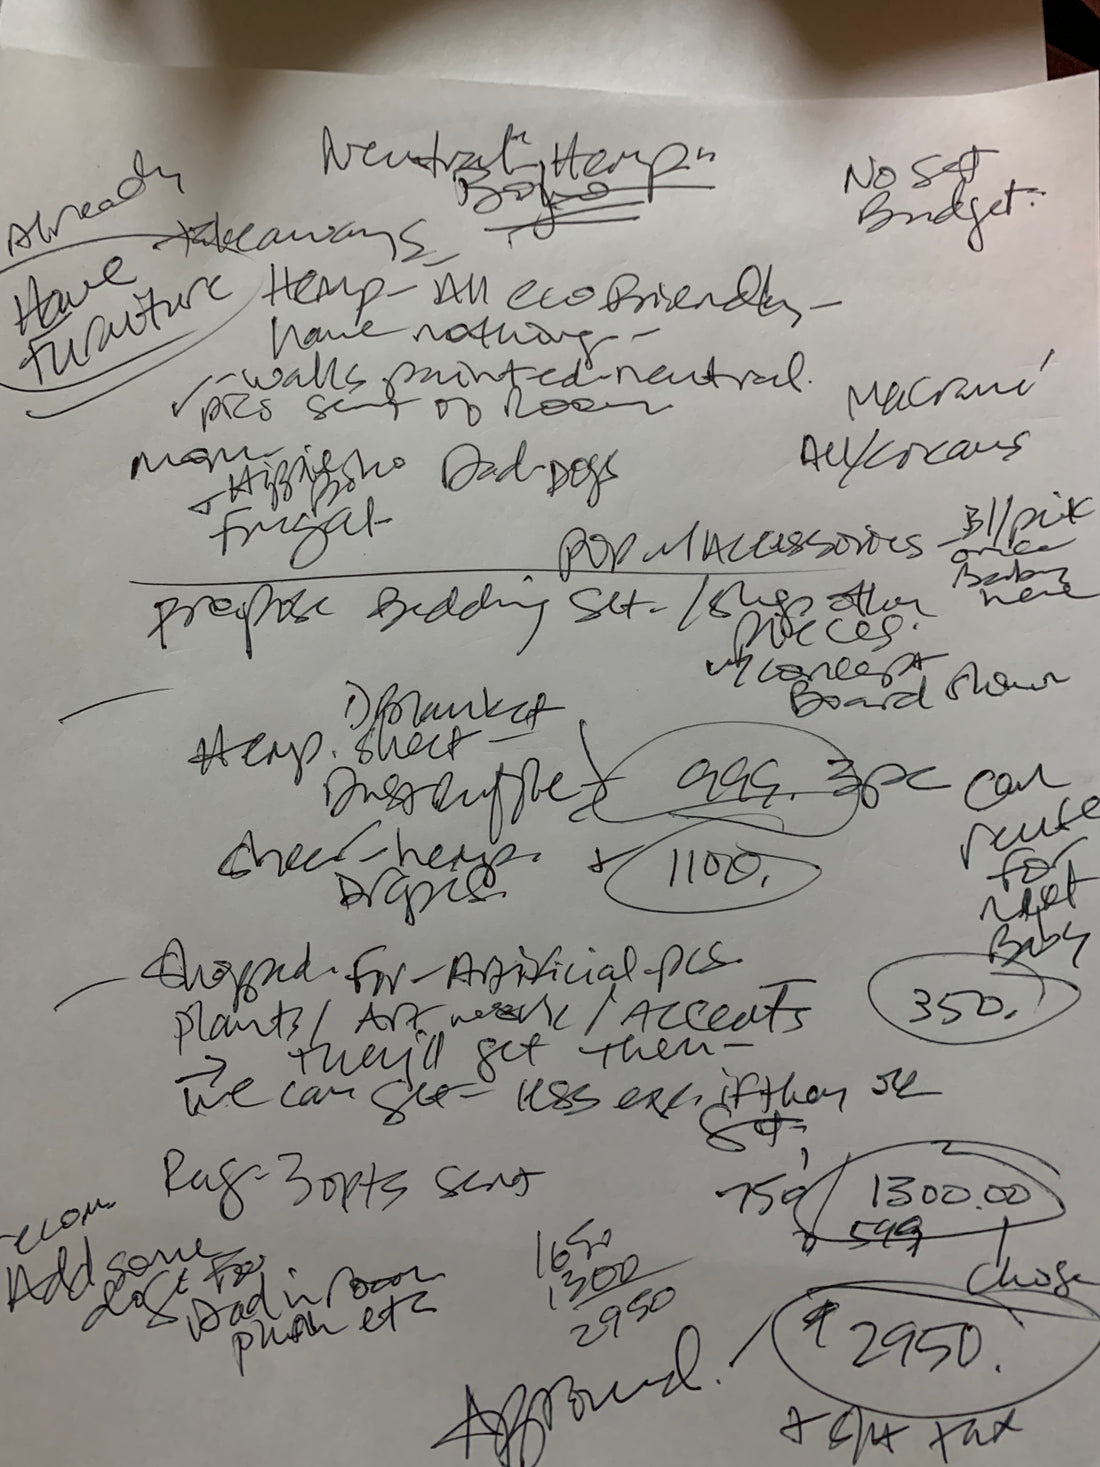 Neutral "Hemp"
Boho
No Set
Budget.
Already
Have
furniture
takeaways
Hemp - All eco friendly -
have nothing -
- walls painted - neutral.
✓ pics sent of Room
Macramé
All/creams
mom -
- Hippie boho
frugal -
Dad - Dogs
POP w/ Accessories -
once
Baby
here
Propose Bedding Set - / shop other
pieces.
w/ concept
Board shown
1) Blanket
Hemp. sheet -
Dust ruffle
999. 3pc
can
reuse
for
next
Baby
Sheer - hemp.
Drapes.
+ 1100.
- Shopped - for - Artificial - pcs.
plants / Art work / Accents
350.
→ they'll get them -
we can get - less exp. if they
get.
Rug - 3 opts sent
750 / 1300.00
599
chose
Add some
Dad in Room
etc
1650
1300
2950
Approved. / $ 2950.
+ tax